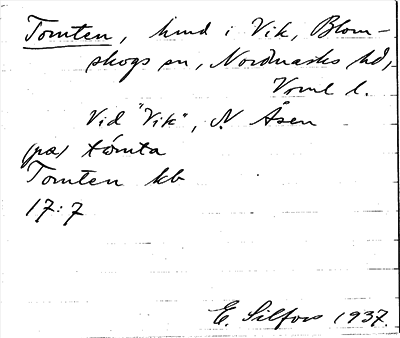 Tomten, hmd i Vik, Blom-
skogs sn, Nordmarks hd,
Vrml l.
Vid "Vik", N. Åsen
(på) tòmta
Tomten kb
17:7
E. Silfors 1937.